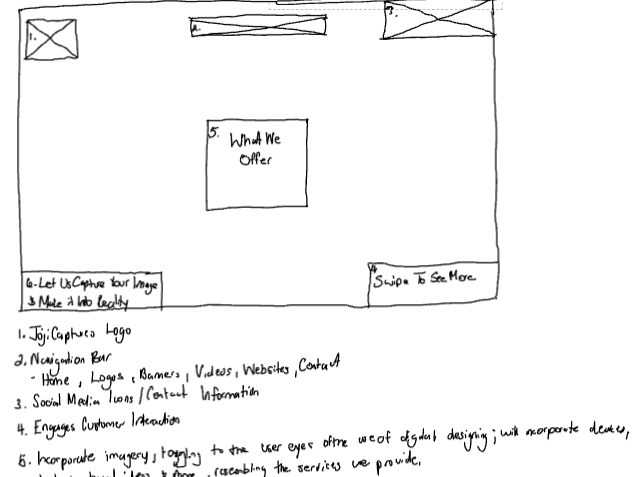 1.
2.
3.
5. What We
Offer
6. Let Us Capture Your Image
& Make it Into Reality
4.
Swipe To See More
1. JojiCaptures Logo
2. Navigation Bar
- Home, Logos, Banners, Videos, Websites, Contact
3. Social Media Icons / Contact Information
4. Engages Customer Interaction
5. Incorporate imagery, to the user eyes of the use of digital designing; will incorporate devices,
resembling the services we provide.